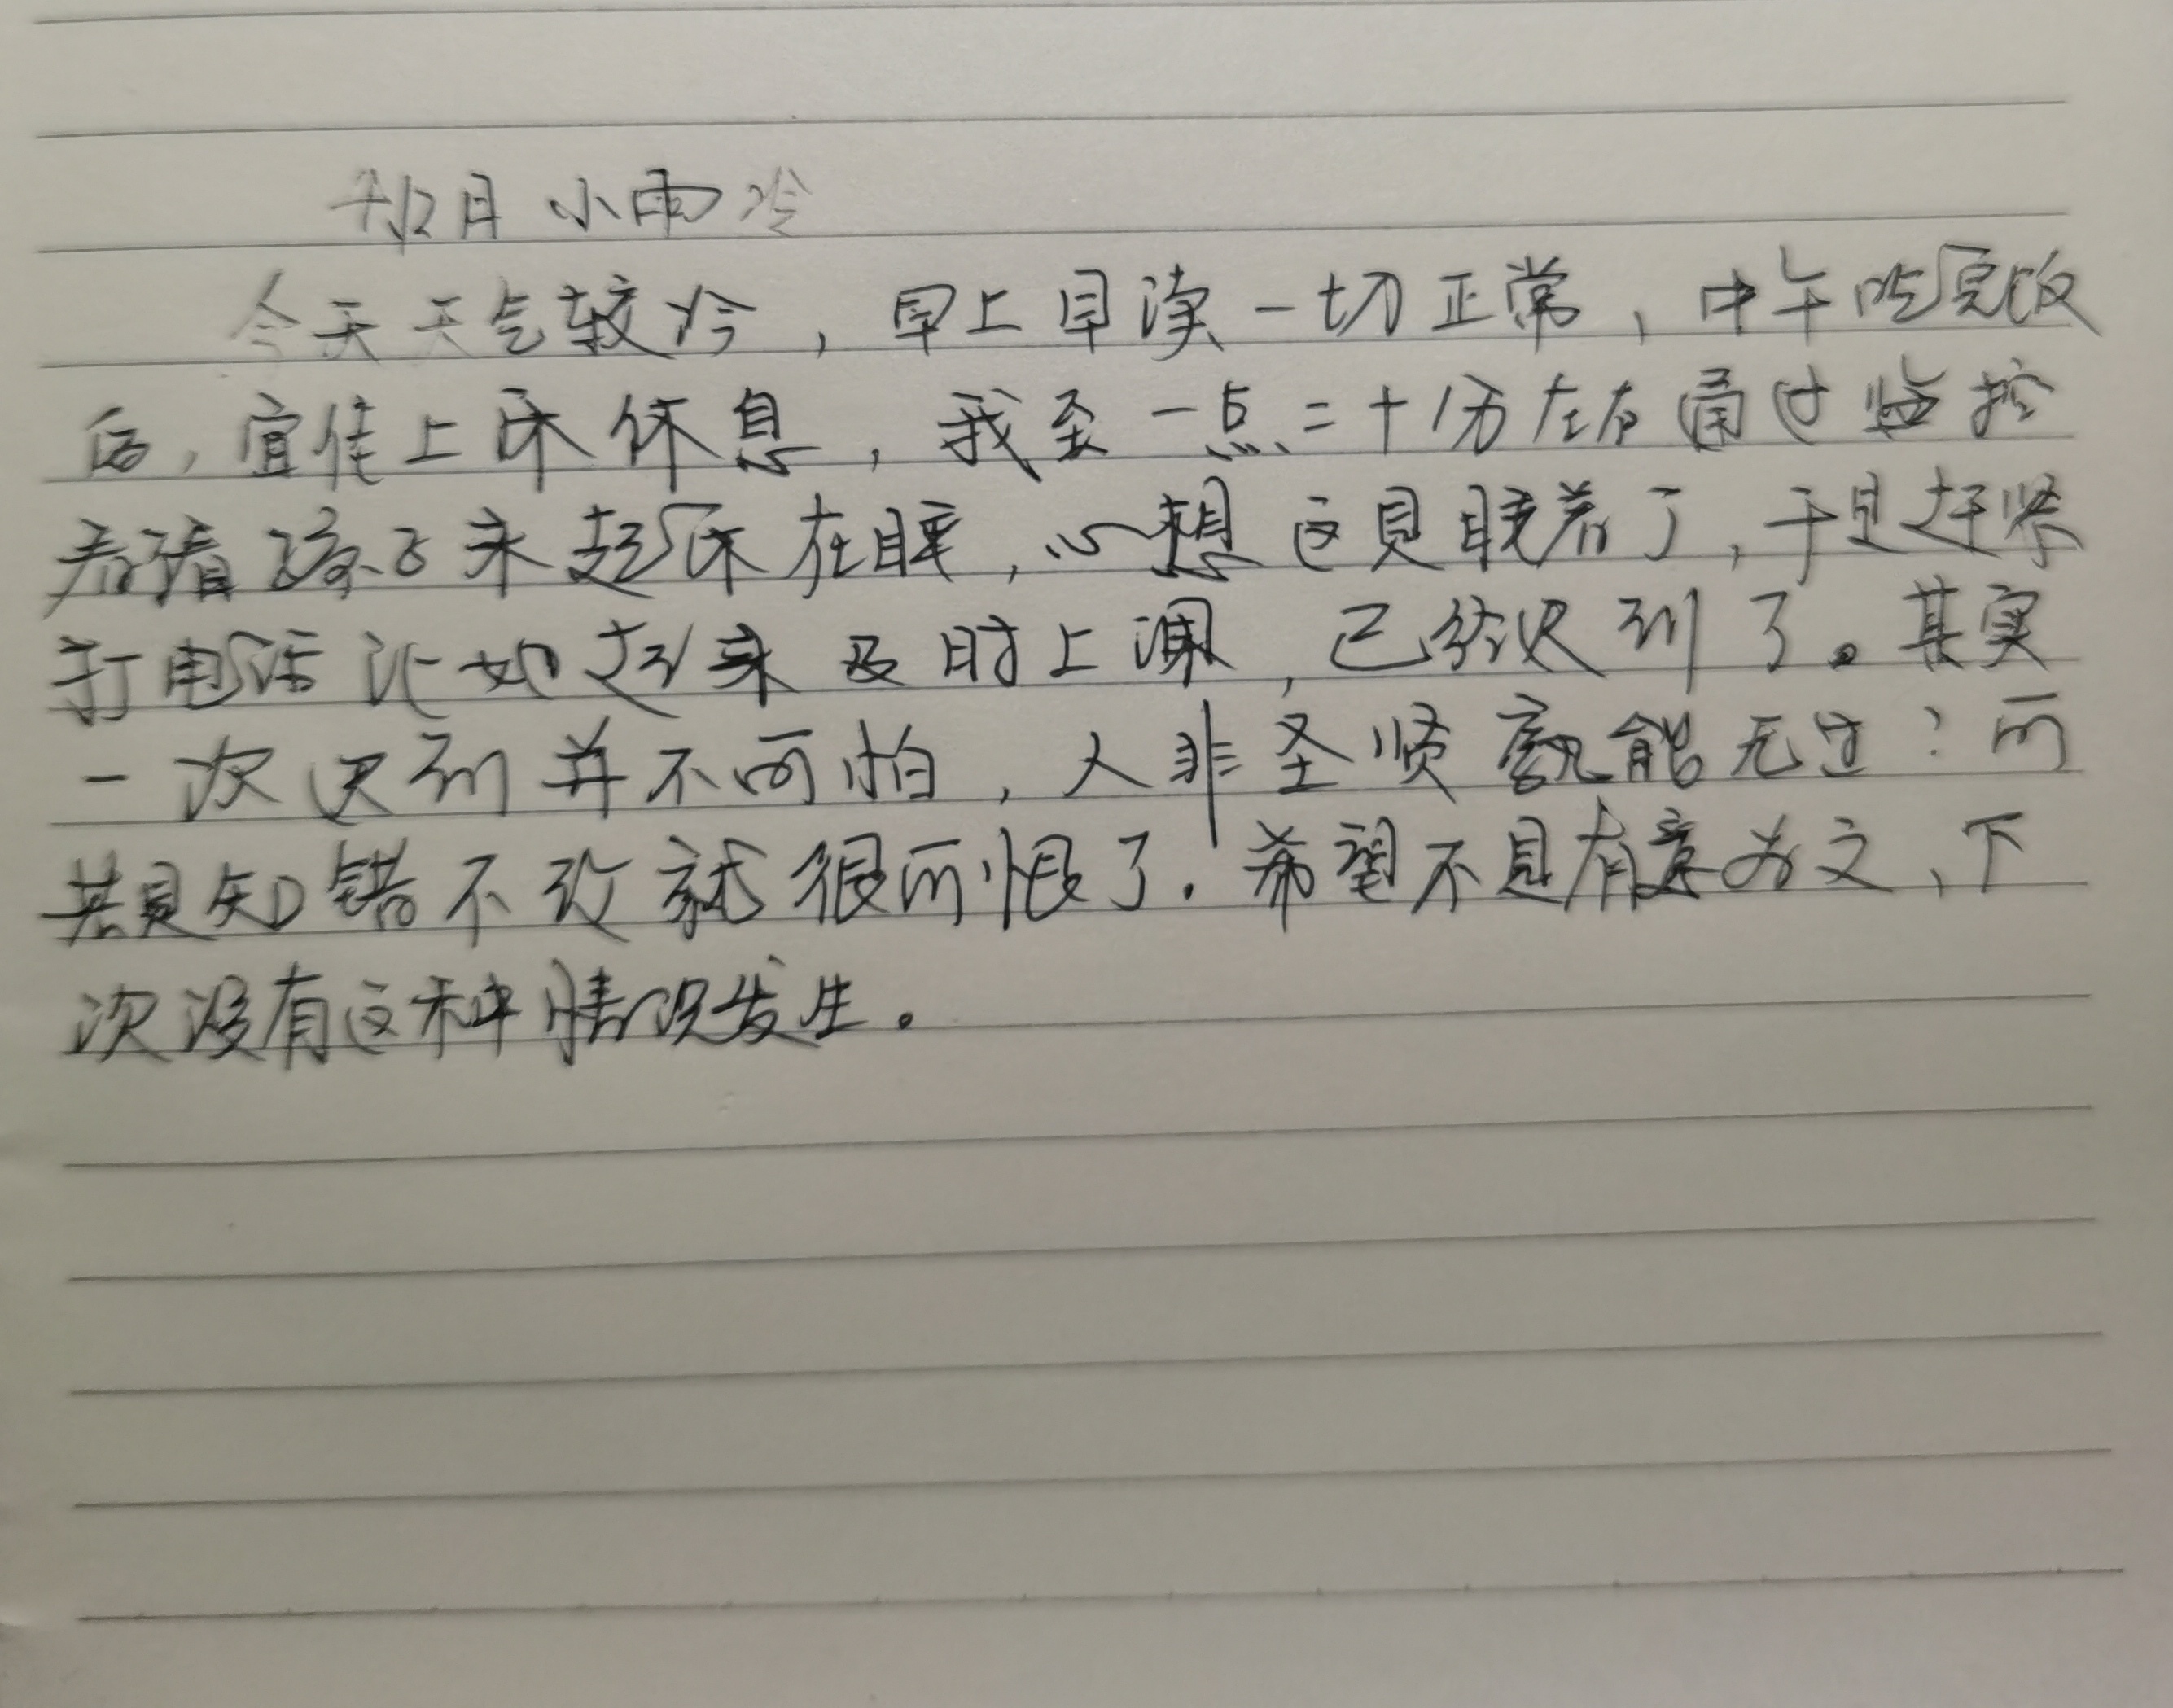 小雨 冷
今天天气较冷，早上早读一切正常，中午吃完饭
后，宜佳上床休息，我至一点二十分左右通过监控
看着孩子未起床在睡，心想这是睡着了，于是赶紧
打电话让她起来及时上课，已经迟到了。其实
一次迟到并不可怕，人非圣贤孰能无过？可
其是知错不改就很可恨了。希望不是有意为之，下
次没有这种情况发生。